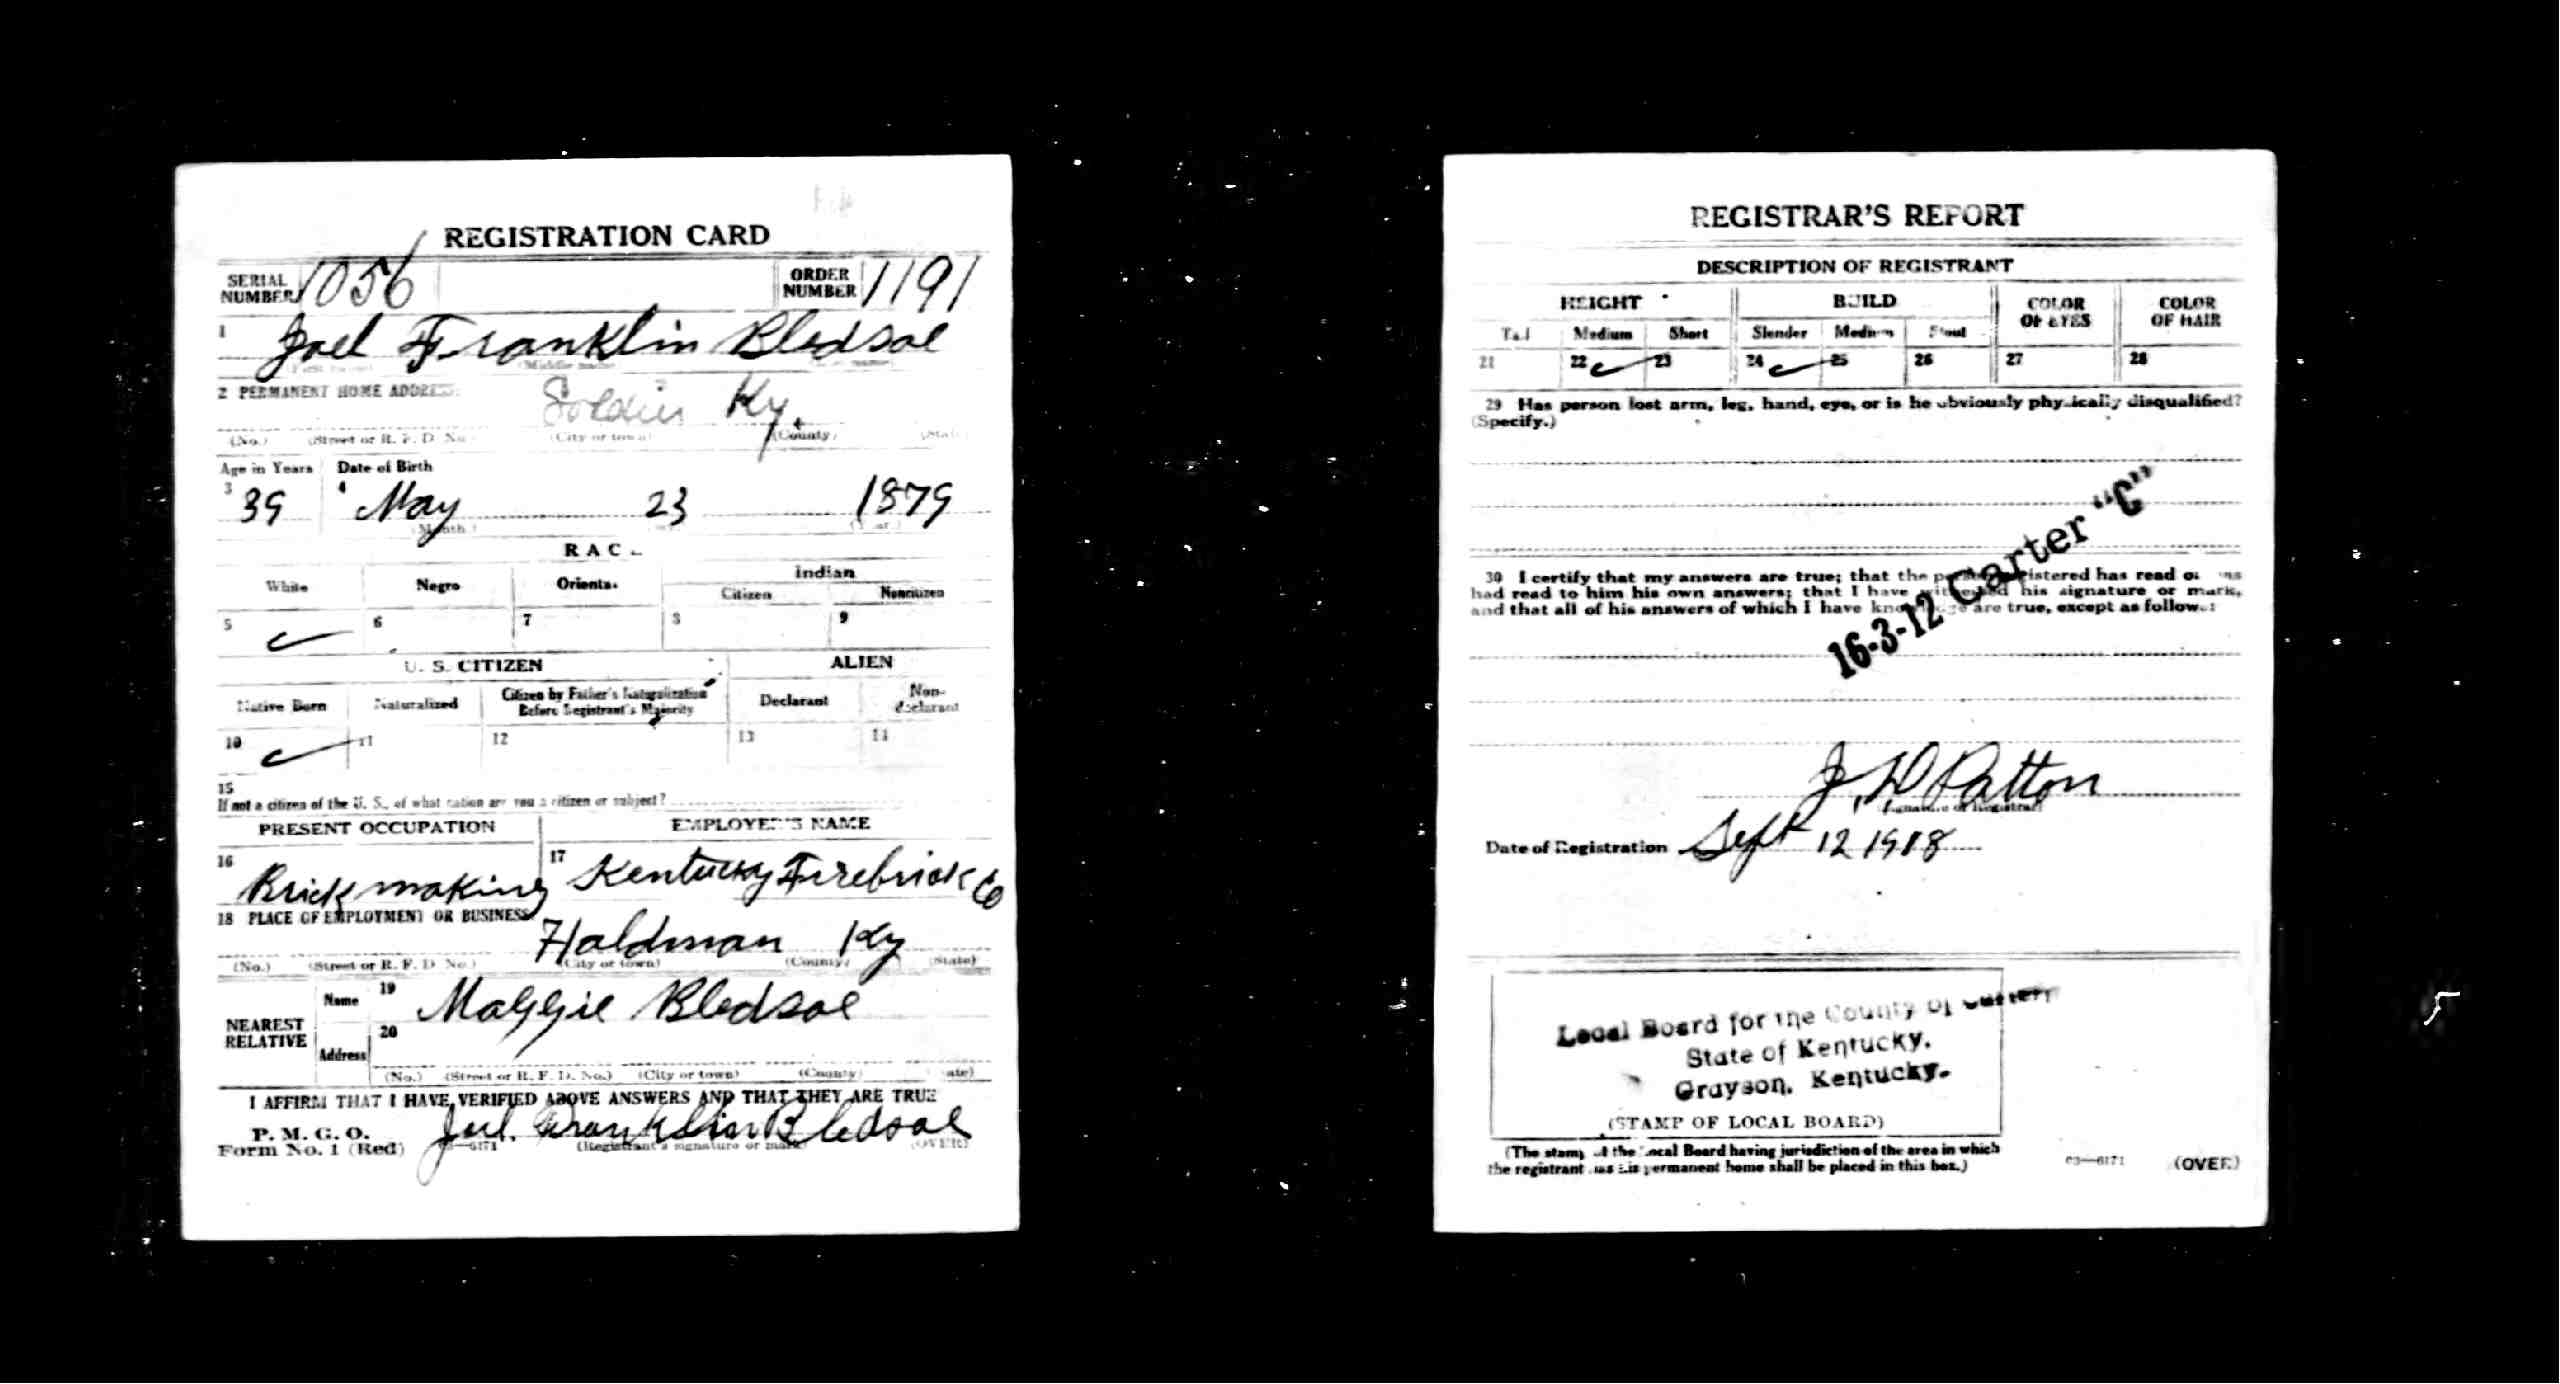 REGISTRATION CARD
SERIAL NUMBER 1056 ORDER NUMBER 1191
1 Joel Franklin Bledsoe
(First name) (Middle name) (Last name)
2 PERMANENT HOME ADDRESS:
Soldier Ky.
(No.) (Street or R. F. D. No.) (City or town) (County) (State)
Age in Years Date of Birth
3 39 4 May 23 1879
(Month.) (Year.)
RACE
White Negro Oriental Indian
Citizen Noncitizen
5 6 7 8 9
U. S. CITIZEN ALIEN
Native Born Naturalized Citizen by Father's Naturalization Before Registrant's Majority Declarant Non-declarant
10 11 12 13 14
15
If not a citizen of the U. S., of what nation are you a citizen or subject?
PRESENT OCCUPATION EMPLOYER'S NAME
16 Brick making 17 Kentucky Firebrick Co
18 PLACE OF EMPLOYMENT OR BUSINESS
Haldman Ky
(No.) (Street or R. F. D. No.) (City or town) (County) (State)
NEAREST RELATIVE Name 19 Maggie Bledsoe
Address 20
(No.) (Street or R. F. D. No.) (City or town) (County) (State)
I AFFIRM THAT I HAVE VERIFIED ABOVE ANSWERS AND THAT THEY ARE TRUE
P. M. G. O.
Form No. 1 (Red) Joel Franklin Bledsoe
6171 (Registrant's signature or mark) (OVER)
REGISTRAR'S REPORT
DESCRIPTION OF REGISTRANT
HEIGHT BUILD COLOR OF EYES COLOR OF HAIR
Tall Medium Short Slender Medium Stout
21 22 23 24 25 26 27 28
29 Has person lost arm, leg, hand, eye, or is he obviously physically disqualified?
(Specify.)
30 I certify that my answers are true; that the person registered has read or has
had read to him his own answers; that I have witnessed his signature or mark,
and that all of his answers of which I have knowledge are true, except as follows:
16-3-12 Carter "C"
J. D. Patton
(Signature of Registrar)
Date of Registration Sept 12 1918
Local Board for the County of Carter,
State of Kentucky.
Grayson, Kentucky.
(STAMP OF LOCAL BOARD)
(The stamp of the Local Board having jurisdiction of the area in which
the registrant has his permanent home shall be placed in this box.)
03—6171 (OVER)